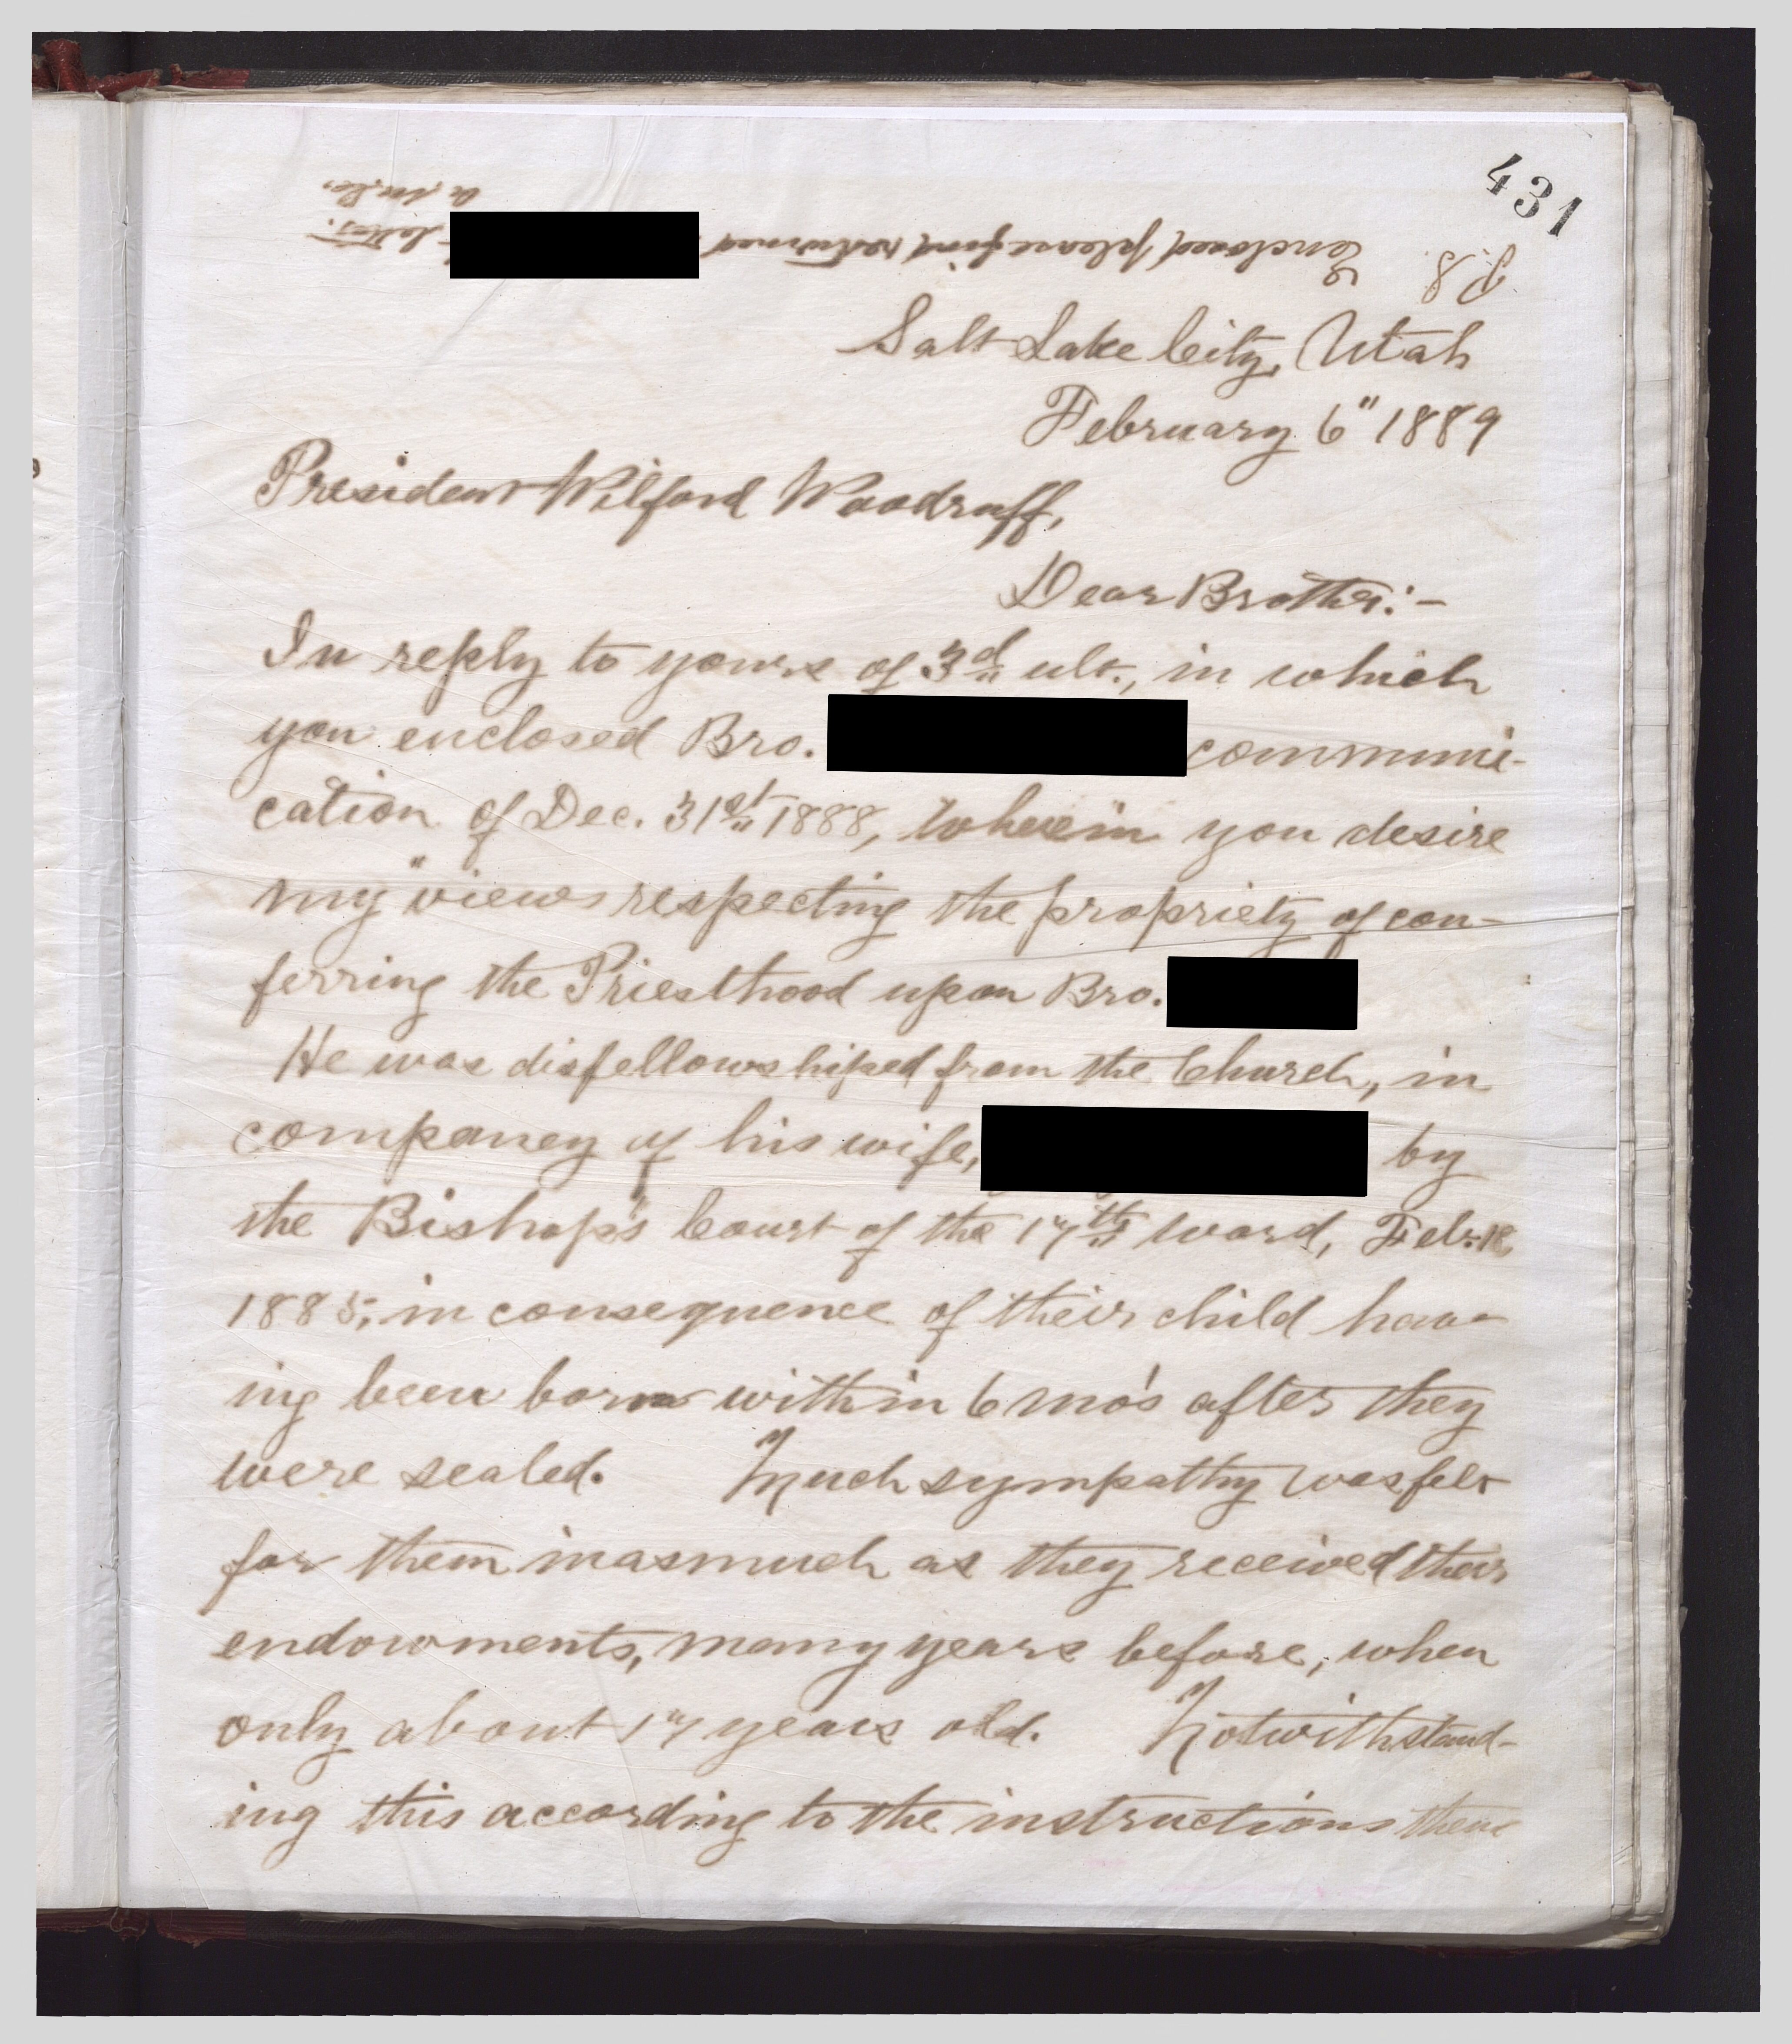 431
P.S. Enclosed please find returned letter.
Salt Lake City, Utah
February 6" 1889
President Wilford Woodruff,
Dear Brother:-
In reply to yours of 3d ult., in which
you enclosed Bro. communi-
cation of Dec. 31st 1888, wherein you desire
my "views respecting the propriety of con-
ferring the Priesthood upon Bro.
He was disfellowshiped from the Church, in
company of his wife, by
the Bishop's Court of the 17th Ward, Feb. 18
1885, in consequence of their child hav-
ing been born within 6 mo's after they
were sealed. Much sympathy was felt
for them inasmuch as they received their
endowments, many years before, when
only about 17 years old. Notwithstand-
ing this according to the instructions then